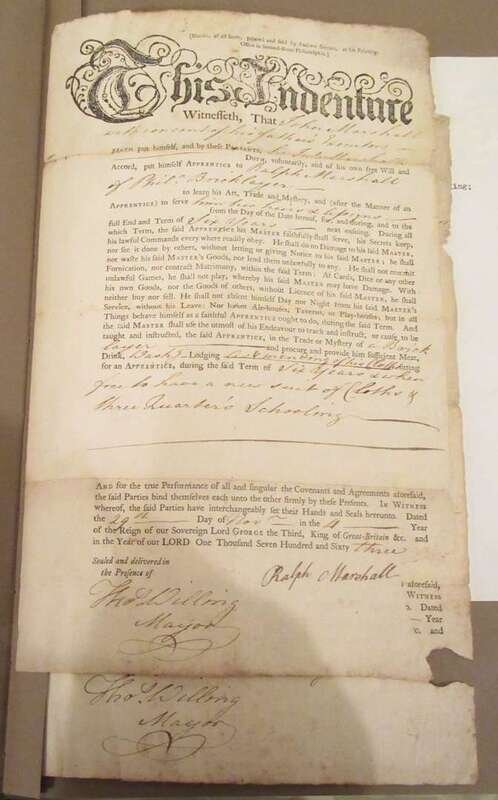 [Blanks of all Sorts, Printed and Sold by Andrew Steuart, at his Printing-
Office in Second-street Philadelphia.]
This Indenture
Witnesseth, That John Marshall
with consent of his father
HATH put himself, and by these Presents,
DOTH, voluntarily, and of his own free Will and
Accord, put himself APPRENTICE to Ralph Marshall
of Philᵃ. Bricklayer
to learn his Art, Trade and Mystery, and (after the Manner of an
APPRENTICE) to serve him his heirs & assigns
from the Day of the Date hereof, for, and during, and to the
full End and Term of Six Years next ensuing. During all
which Term, the said APPRENTICE his MASTER faithfully shall serve, his Secrets keep,
his lawful Commands every where readily obey. He shall do no Damage to his said MASTER,
nor see it be done by others, without letting or giving Notice to his said MASTER. He shall
not waste his said MASTER's Goods, nor lend them unlawfully to any. He shall not commit
Fornication, nor contract Matrimony, within the said Term: At Cards, Dice or any other
unlawful Games, he shall not play, whereby his said MASTER may have Damage. With
his own Goods, nor the Goods of others, without Licence of his said MASTER, he shall
neither buy nor sell. He shall not absent himself Day nor Night from his said MASTER's
Service, without his Leave: Nor haunt Ale-houses, Taverns, or Play-houses; but in all
Things behave himself as a faithful APPRENTICE ought to do, during the said Term. And
the said MASTER shall use the utmost of his Endeavour to teach and instruct, or cause to be
taught and instructed, the said APPRENTICE, in the Trade or Mystery of a Brick
layer and procure and provide him sufficient Meat,
Drink, Wash^g. Lodging & mending of his Cloths fitting
for an APPRENTICE, during the said Term of Six Years & when
free to have a new suit of Cloths &
three Quarter's Schooling
AND for the true Performance of all and singular the Covenants and Agreements aforesaid,
the said Parties bind themselves each unto the other firmly by these Presents. IN WITNESS
whereof, the said Parties have interchangeably set their Hands and Seals hereunto. Dated
the 29th Day of Novʳ in the 4 Year
of the Reign of our Sovereign Lord GEORGE the Third, King of Great-Britain &c. and
in the Year of our LORD One Thousand Seven Hundred and Sixty three
Sealed and delivered
in the Presence of
Ralph Marshall
Thoˢ. Willing
Mayor
aforesaid,
WITNESS
Dated
Year
&c. and
Thoˢ. Willing
Mayor
ing: